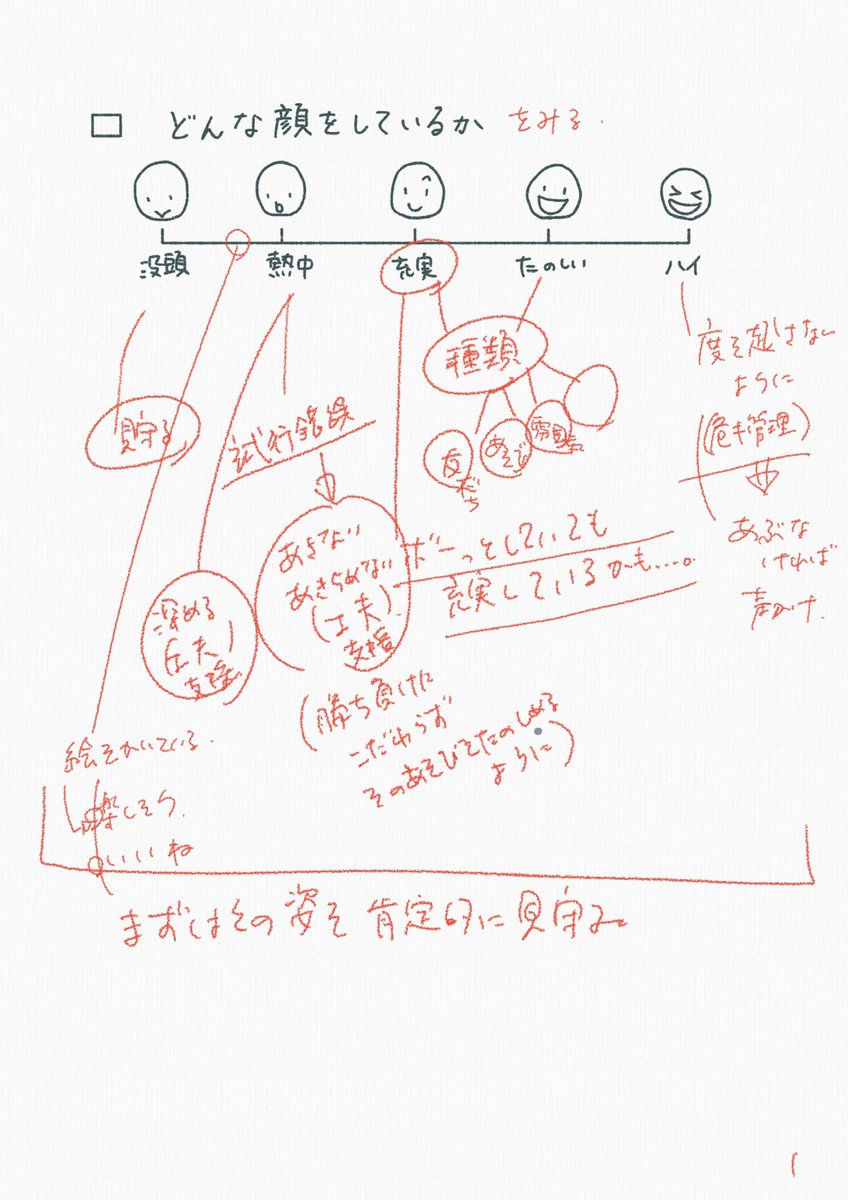 □ どんな顔をしているか をみる.
没頭 熱中 充実 たのしい ハイ
見守る
試行錯誤
種類
友だち
あそび
雰囲気
度を超さない
ように
(危キ管理)
あぶな
ければ
声かけ.
あきない
あきらめない
(工夫)
支援
ボーっとしていても
充実しているかも……。
深める
(工夫)
支援
(勝ち負けに
こだわらず
そのあそびをたのしめる
ように)
絵をかいている.
楽しそう.
いいね
まずはその姿を肯定的に見守る。